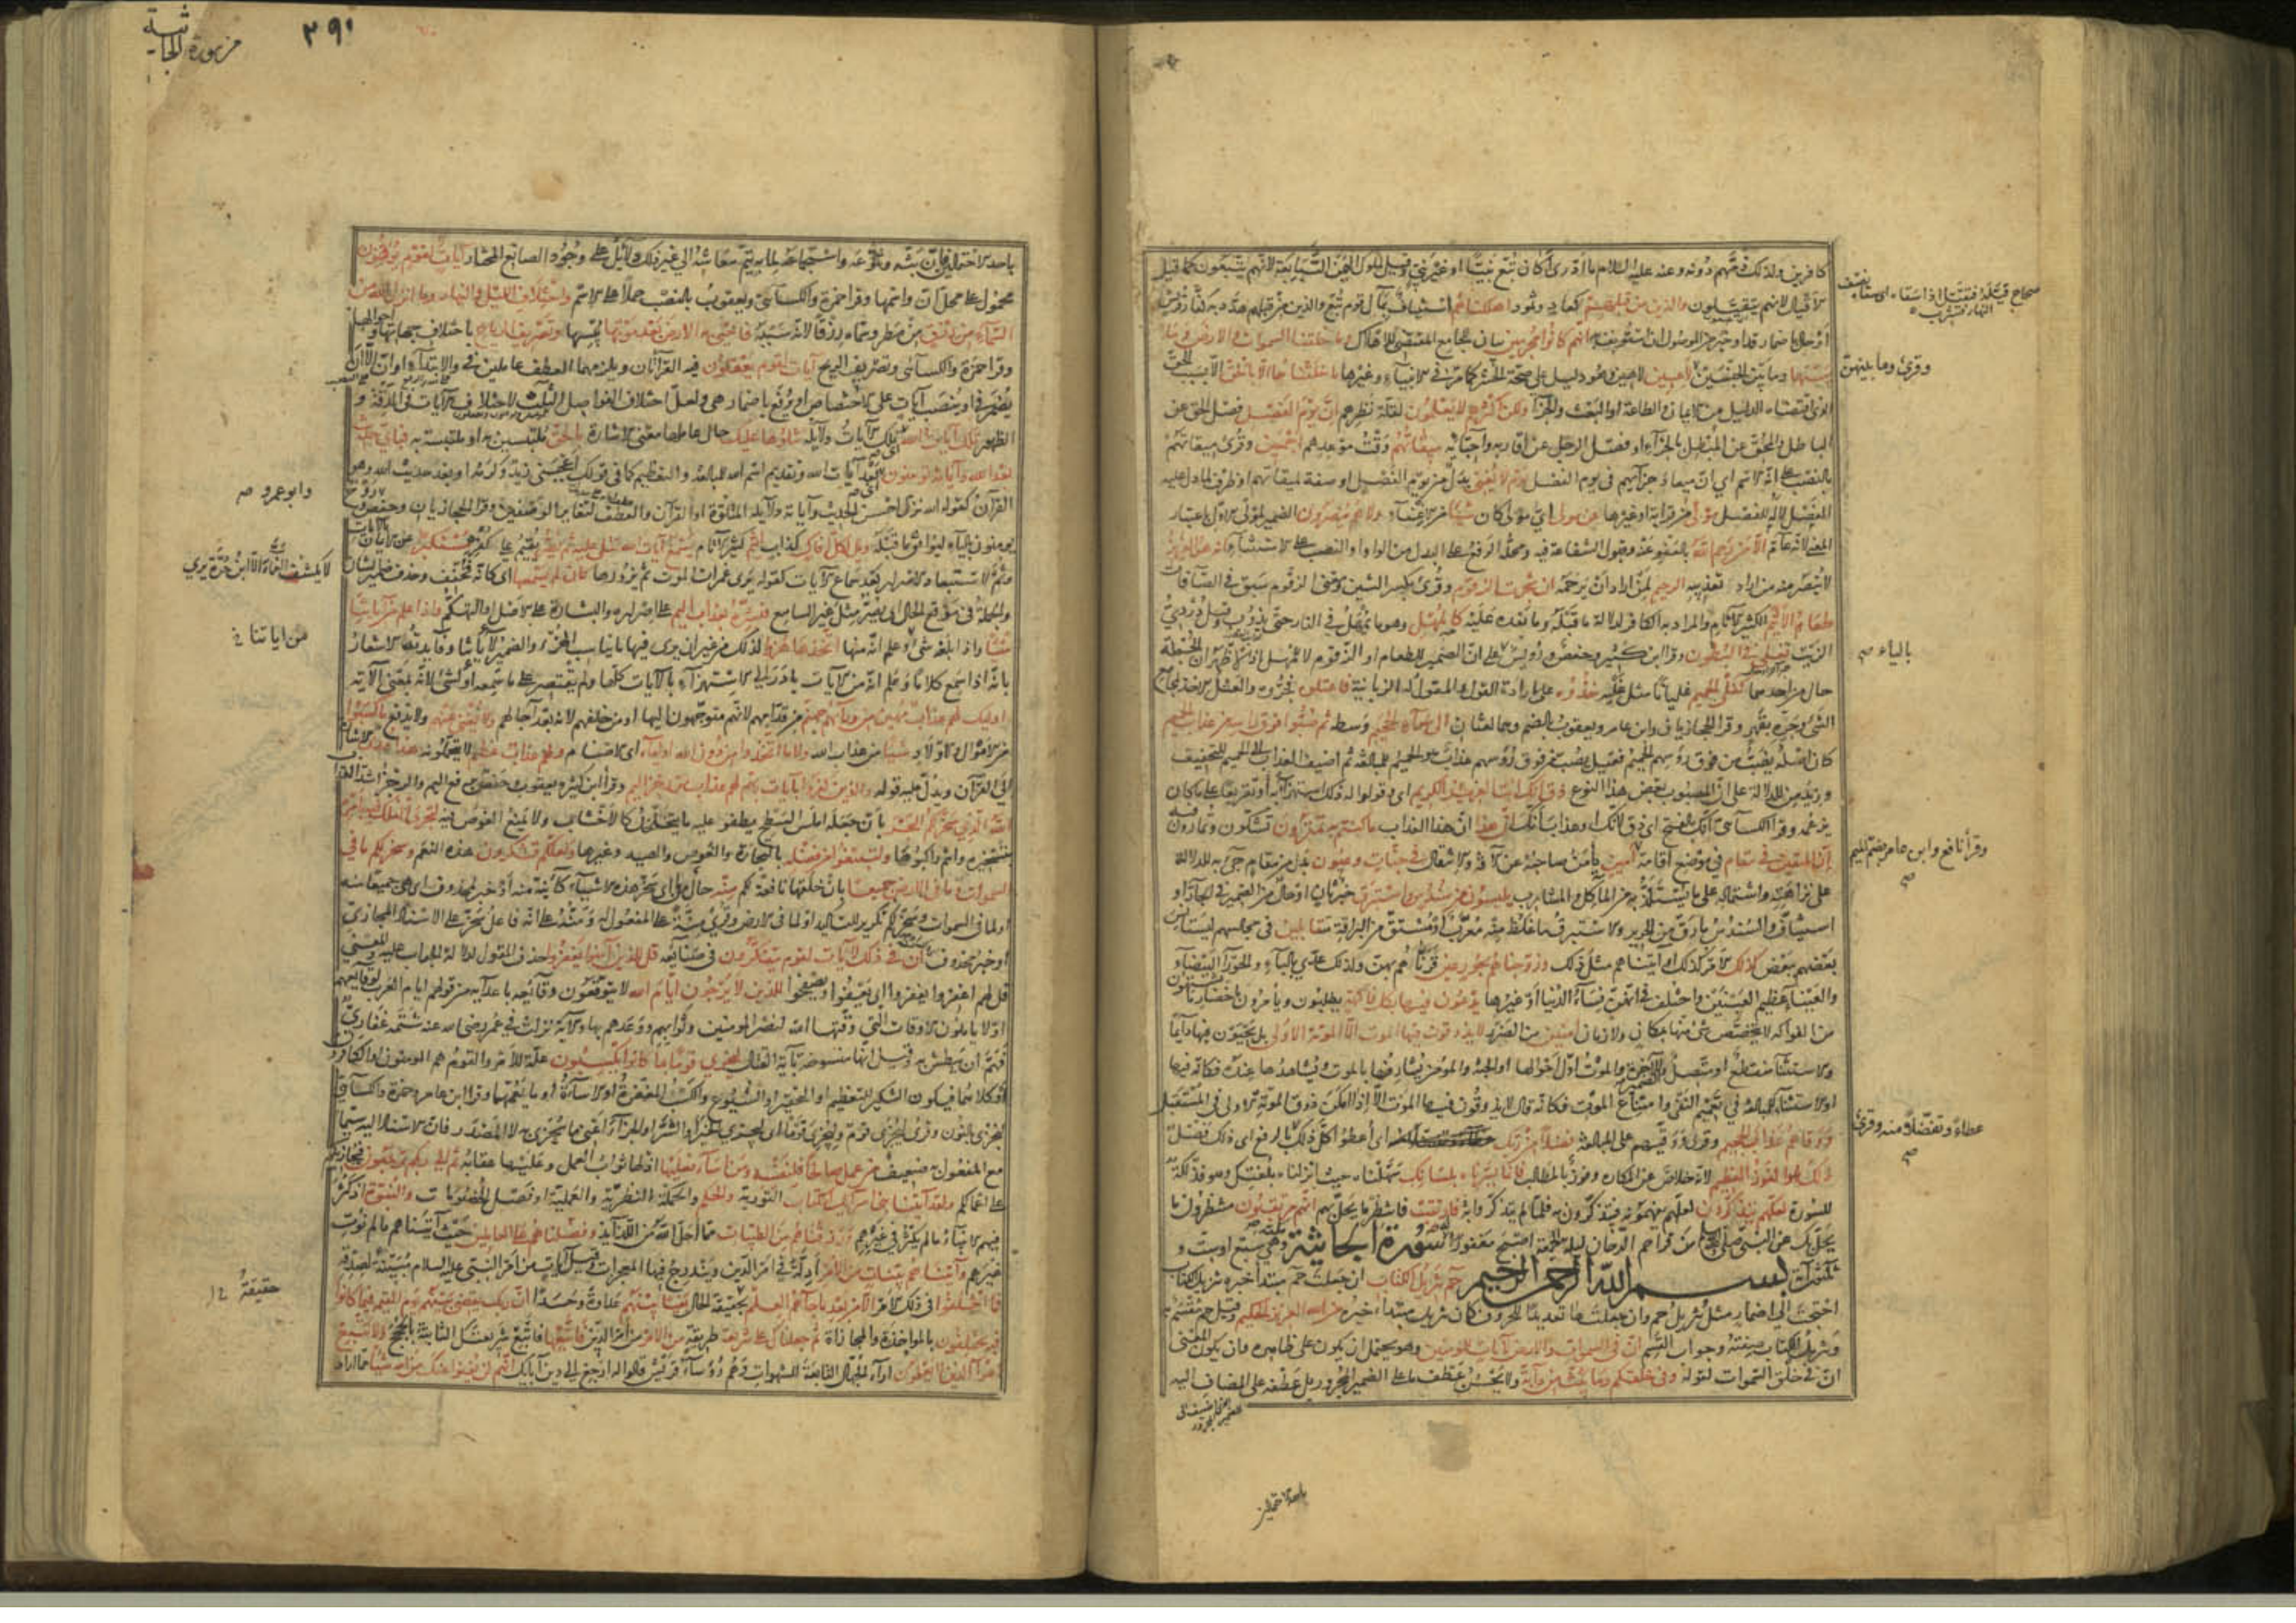 كافرين ولذلك ذمهم دونه وعنه عليه السلام ما أدري أكان تبع نبيا او غير نبي وقيل لملوك اليمن التبابعة لانهم يتبعون كما قيل
الاقيال لانهم يتقيلون والذين من قبلهم كعاد وثمود اهلكناهم استيناف بمآل قوم تبع والذين من قبلهم هدد به كفار قريش
او حال باضمار قد او خبر من الموصول ان استؤنف به انهم كانوا مجرمين بيان للجامع المقتضي للاهلاك وما خلقنا السموات والارض وما
بينهما وما بين الجنسين لاعبين لاهين وهو دليل على صحة الحشر كما مر في الانبياء وغيرها ما خلقناهما الا بالحق الا بسبب الحق
الذي اقتضاه الدليل من الايمان والطاعة او البعث والجزآء ولكن اكثرهم لا يعلمون لقلة نظرهم ان يوم الفصل فصل الحق عن
الباطل والمحق عن المبطل بالجزآء او فصل الرجل عن اقاربه واحبائه ميقاتهم وقت موعدهم اجمعين وقرئ ميقاتهم
بالنصب على انه الاسم اي ان ميعاد جزآئهم في يوم الفصل يوم لا يغني بدل من يوم الفصل او صفة لميقاتهم او ظرف لما دل عليه
الفصل لا له للفصل مولى من قرابة او غيرها عن مولى اي مولى كان شيئا من الاغناء ولا هم ينصرون الضمير لمولى الاول باعتبار
المعنى لانه عام الا من رحم الله بالعفو عنه وقبول الشفاعة فيه ومحله الرفع على البدل من الواو او النصب على الاستثناء انه هو العزيز
لا ينصر منه من اراد تعذيبه الرحيم لمن اراد ان يرحمه ان شجرت الزقوم وقرئ بكسر الشين ومعنى الزقوم سبق في الصافات
طعام الاثيم الكثير الاثام والمراد به الكافر لدلالة ما قبله وما بعده عليه كالمهل وهو ما يمهل في النار حتى يذوب وقيل دردي
الزيت تغلي في البطون وقرأ ابن كثير وحفص ورويس على ان الضمير للطعام او الزقوم لا للمهل اذ الاظهر ان الجملة
حال من احدهما كغلي الحميم غليانا مثل غليه خذوه على ارادة القول والمقول له الزبانية فاعتلوه فجروه والعتل الاخذ بمجامع
الشئ وجره بقهر وقرأ الحجازيان وابن عامر ويعقوب بالضم وهما لغتان الى سوآء الجحيم وسطه ثم صبوا فوق رأسه من عذاب الحميم
كان اصله يصب من فوق رؤسهم الحميم فقيل يصب من فوق رؤسهم عذاب هو الحميم للمبالغة ثم اضيف العذاب الى الحميم للتخفيف
وزيد من للدلالة على ان المصبوب بعض هذا النوع ذق انك انت العزيز الكريم اي وقولوا له ذلك استهزآء به او تقريعا على ما كان
يزعمه وقرأ الكسائي انك بالفتح اي ذق لانك او عذاب انك ان هذا ان هذا العذاب ما كنتم به تمترون تشكون وتمارون فيه
ان المتقين في مقام في موضع اقامة امين يأمن صاحبه عن الآفة والانتقال في جنات وعيون بدل من مقام جئ به للدلالة
على نزاهته واشتماله على ما يستلذ به من المآكل والمشارب يلبسون من سندس واستبرق خبر ثان او حال من الضمير في الجار او
استيناف والسندس ما رق من الحرير والاستبرق ما غلظ منه معرب او مشتق من البراقة متقابلين في مجالسهم ليستأنس
بعضهم ببعض كذلك الامر كذلك او آتيناهم مثل ذلك وزوجناهم بحور عين قرناهم بهن ولذلك عدي بالباء والحورآء البيضآء و
والعينآء عظيم العينين واختلف في انهن نساء الدنيا او غيرها يدعون فيها بكل فاكهة يطلبون ويأمرون باحضار ما يشتهون
من الفواكه لا يتخصص شئ منها بمكان ولا زمان آمنين من الضرر لا يذوقون فيها الموت الا الموتة الاولى بل يحيون فيها دآئما
والاستثنآء منقطع او متصل والضمير للآخرة والموت اول احوالها او الجنة والمؤمن يشارفها بالموت ويشاهدها عنده فكانه فيها
او الاستثنآء للمبالغة في تعميم النفي وامتناع الموت فكانه قال لا يذوقون فيها الموت الا اذا امكن ذوق الموتة الاولى في المستقبل
ووقاهم عذاب الجحيم وقرئ ووقيهم على المبالغة فضلا من ربك اي اعطوا كل ذلك بالرفع اي ذلك فضل
ذلك هو الفوز العظيم لانه خلاص عن المكاره وفوز بالمطالب فانما يسرناه بلسانك سهلناه حيث انزلناه بلغتك وهو فذلكة
للسورة لعلهم يتذكرون لعلهم يفهمونه فيتذكرون به فلما لم يتذكروا به فارتقب فانتظر ما يحل بهم انهم مرتقبون منتظرون ما
يحل بك عن النبي صلى الله عليه وسلم من قرأ حم الدخان ليلة جمعة اصبح مغفورا له سورة الجاثية مكية وهي سبع او ست و
ثلثون آية بسم الله الرحمن الرحيم حم تنزيل الكتاب ان جعلت حم مبتدأ خبره تنزيل الكتاب
احتجت الى اضمار مثل تنزيل حم وان جعلتها تعديدا للحروف كان تنزيل مبتدأ خبره من الله العزيز الحكيم وقيل حم مقسم به
وتنزيل الكتاب صفته وجواب القسم ان في السموات والارض لآيات للمؤمنين وهو يحتمل ان يكون على ظاهره وان يكون المعنى
ان في خلق السموات لقوله وفي خلقكم وما يبث من دآبة ولا يحسن عطف ما على الضمير المجرور بل عطفه على المضاف اليه
وقرئ وما بينهن
بالياء صح
وقرأ نافع وابن عامر بضم الميم
صح
عطاء وتفضلا منه وقرئ
صح
من سورة الجاثية
٣٩٠
باحد الاحتمالين فان بثه وتنوعه واستجماعه لما به يتم معاشه الى غير ذلك دلائل على وجود الصانع المختار آيات لقوم يوقنون
محمول على محل ان واسمها وقرأ حمزة والكسائي ويعقوب بالنصب حملا على الاسم واختلاف الليل والنهار وما انزل الله من
السماء من رزق من مطر وسماه رزقا لانه سببه فاحيى به الارض بعد موتها يبسها وتصريف الرياح باختلاف جهاتها واحوالها
وقرأ حمزة والكسائي وتصريف الريح آيات لقوم يعقلون فيه القرآءتان ويلزمهما العطف على عاملين في والابتدآء او ان الا ان
يضمر في او ينصب آيات على الاختصاص او يرفع باضمار هي ولعل اختلاف الفواصل الثلث لاختلاف الآيات في الدقة و
الظهور تلك آيات الله اي تلك الآيات دلآئله نتلوها عليك حال عاملها معنى الاشارة بالحق ملتبسين به او ملتبسة به فباي حديث
بعد الله وآياته يؤمنون اي بعد آيات الله وتقديم اسم الله للمبالغة والتعظيم كما في قولك اعجبني زيد وكرمه او بعد حديث الله وهو
القرآن كقوله الله نزل احسن الحديث وآياته دلآئله المتلوة او القرآن والعطف لتغاير الوصفين وقرأ الحجازيان وحفص وروح
يؤمنون بالياء ليوافق ما قبله ويل لكل افاك كذاب اثيم كثير الآثام يسمع آيات الله تتلى عليه ثم يصر يقيم على كفره مستكبرا عن الايمان بالآيات
وثم لاستبعاد الاصرار بعد سماع الآيات كقوله يرى غمرات الموت ثم يزورها كأن لم يسمعها اي كانه فخفف وحذف ضمير الشان
والجملة في موقع الحال اي يصر مثل غير السامع فبشره بعذاب اليم على اصراره والبشارة على الاصل او التهكم واذا علم من آياتنا
شيئا واذا بلغه شئ وعلم انه منها اتخذها هزوا لذلك من غير ان يرى فيها ما يناسب الهزؤ والضمير لآياتنا وفآئدته الاشعار
بانه اذا سمع كلاما وعلم انه من الآيات بادر الى الاستهزآء بالآيات كلها ولم يقتصر على ما سمعه او لشئ لانه بمعنى الآية
اولئك لهم عذاب مهين من ورآئهم جهنم من قدامهم لانهم متوجهون اليها او من خلفهم لانه بعد آجالهم ولا يغني عنهم ولا يدفع ما كسبوا
من الاموال والاولاد شيئا من عذاب الله ولا ما اتخذوا من دون الله اوليآء اي الاصنام ولهم عذاب عظيم لا يتحملونه هذا هدى الاشارة
الى القرآن ويدل عليه قوله والذين كفروا بآيات ربهم لهم عذاب من رجز اليم وقرأ ابن كثير ويعقوب وحفص برفع اليم والرجز اشد العذاب
الله الذي سخر لكم البحر بان جعله املس السطح يطفو عليه ما يتخلخل كالاخشاب ولا يمنع الغوص فيه لتجري الفلك فيه بامره
بتسخيره وانتم راكبوها ولتبتغوا من فضله بالتجارة والغوص والصيد وغيرها ولعلكم تشكرون هذه النعم وسخر لكم ما في
السموات وما في الارض جميعا بان خلقها نافعة لكم منه حال من ما اي سخر هذه الاشيآء كآئنة منه او خبر لمحذوف اي هي جميعا منه
او لما في السموات وسخر لكم تكرير للتأكيد او لما في الارض وقرئ منة على المفعول له ومنه على انه فاعل سخر على الاسناد المجازي
او خبر محذوف ان في ذلك لآيات لقوم يتفكرون في صنآئعه قل للذين آمنوا يغفروا حذف المقول لدلالة الجواب عليه والمعنى
قل لهم اغفروا يغفروا اي يعفوا ويصفحوا للذين لا يرجون ايام الله لا يتوقعون وقآئعه باعدآئه من قولهم ايام العرب لوقايعهم
او لا يأملون الاوقات التي وقتها الله لنصر المؤمنين وثوابهم ووعدهم بها والآية نزلت في عمر رضي الله عنه شتمه غفاري
فهم ان يبطش به وقيل انها منسوخة بآية القتال ليجزي قوما بما كانوا يكسبون علة للامر والقوم هم المؤمنون او الكافرون
او كلاهما فيكون التنكير للتعظيم او التحقير او الشيوع والكسب المغفرة او الاسآءة او ما يعمهما وقرأ ابن عامر وحمزة والكسآئي
لنجزي بالنون وقرئ ليجزى قوم وليجزى قوما اي ليجزي الخير او الشر او الجزآء اعني ما يجزى به لا المصدر فان الاسناد اليه سيما
مع المفعول به ضعيف من عمل صالحا فلنفسه ومن اسآء فعليها اذ لها ثواب العمل وعليها عقابه ثم الى ربكم ترجعون فيجازيكم
على اعمالكم ولقد آتينا بني اسرآئيل الكتاب التورية والحكم والحكمة النظرية والعملية او فصل الخصومات والنبوة اذ كثر
فيهم الانبيآء ما لم يكثر في غيرهم ورزقناهم من الطيبات مما احل الله من اللذآيذ وفضلناهم على العالمين حيث آتيناهم ما لم نؤت
غيرهم وآتيناهم بينات من الامر ادلة في امر الدين ويندرج فيها المعجزات وقيل آيات من امر النبي عليه السلام مبينة لصدقه
فما اختلفوا في ذلك الامر الا من بعد ما جآءهم العلم بحقيقة الحال بغيا بينهم عداوة وحسدا ان ربك يقضي بينهم يوم القيمة فيما كانوا
فيه يختلفون بالمواخذة والمجازاة ثم جعلناك على شريعة طريقة من الامر من امر الدين فاتبعها فاتبع شريعتك الثابتة بالحجج ولا تتبع
اهوآء الذين لا يعلمون ارآء الجهال التابعة للشهوات وهم رؤسآء قريش قالوا له ارجع الى دين آبآئك انهم لن يغنوا عنك من الله شيئا مما اراد
وابو عمرو صح
من اياتنا
حقيقة